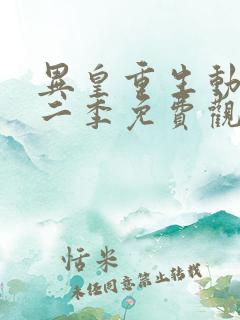 異皇重生動
二季免費觀
恬米
未經同意禁止轉載